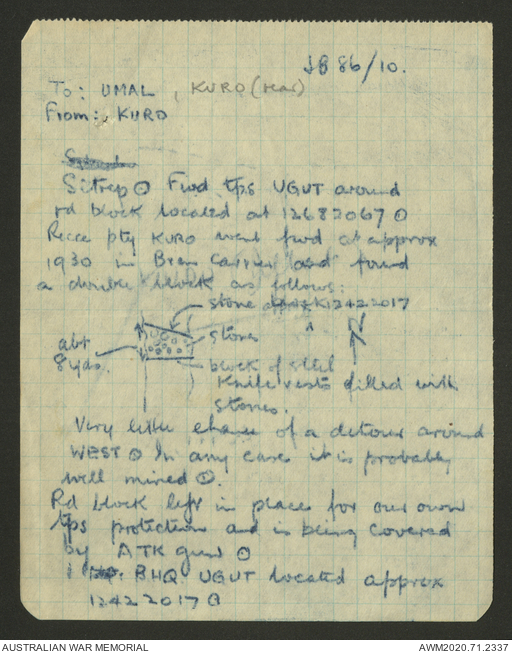 JB 86/10.
To: UMAL, KURO (rear)
From: KURO
Sitrep ⊙ Fwd tps UGUT around
rd block located at 12682067 ⊙
Recce pty KURO went fwd at approx
1930 in Bren Carrier and found
a double block as follows:
stone 12422017
N
abt
8 yds.
stones
block of steel
Knife rests filled with
stones.
Very little chance of a detour around
WEST ⊙ In any case it is probably
well mined ⊙.
Rd block left in place for our own
tps protection and is being covered
by ATK gun ⊙
BHQ UGUT located approx
12422017 ⊙
AUSTRALIAN WAR MEMORIAL
AWM2020.71.2337